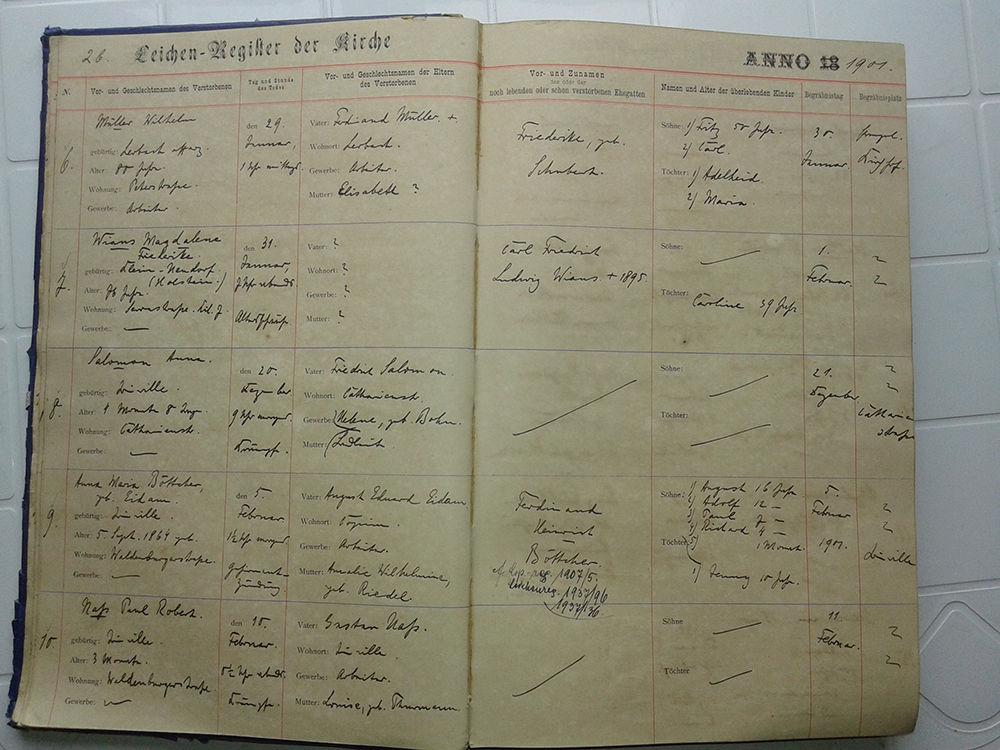 26.
Leichen-Register der Kirche
ANNO 18 1901.
N.
Vor- und Geschlechtsnamen des Verstorbenen
Tag und Stunde
des Todes
Vor- und Geschlechtsnamen der Eltern
des Verstorbenen
Vor- und Zunamen
des oder der
noch lebenden oder schon verstorbenen Ehegatten
Namen und Alter der überlebenden Kinder
Begräbnistag
Begräbnisplatz
6.
Müller Wilhelm
gebürtig: Lerbach
Alter: Jahr.
Wohnung: Peterstraße.
Gewerbe: Arbeiter.
den 29.
Januar,
1 Uhr
Vater: Ferdinand Müller. +
Wohnort: Lerbach.
Gewerbe: Arbeiter.
Mutter: Elisabeth ?
Friederike, geb.
Schubert.
Söhne: 1/ Fritz 50 Jahr.
2/ Carl.
Töchter: 1/ Adelheid.
2/ Maria.
30.
Januar.
Kirchhof.
7.
Wians Magdalene
Friederike.
gebürtig: Klein-Nendorf.
(Holstein.)
Alter: 78 Jahr.
Wohnung:
Gewerbe: —
den 31.
Januar,
7 Uhr abends.
Vater: ?
Wohnort: ?
Gewerbe: ?
Mutter: ?
Carl Friedrich
Ludwig Wians + 1895.
Söhne: —
Töchter: Caroline 39 Jahr
1.
Februar.
8.
Salomon Anna.
gebürtig: Joinville.
Alter: 4 Monate 8 Tage.
Wohnung: Catharienstr.
Gewerbe: —
den 20.
Dezember
9 Uhr morgens.
Krämpfe.
Vater: Friedrich Salomon.
Wohnort: Catharienstr.
Gewerbe: Helene, geb. Bohn.
Mutter:
Söhne: —
Töchter: —
21.
Dezember
9.
Anna Maria Böttcher,
geb. Eidam.
gebürtig: Joinville.
Alter: 5. Sept. 1864 geb.
Wohnung: Waldenburgerstraße.
Gewerbe: —
den 5.
Februar
1½ Uhr morgens.
Vater: August Eduard Eidam
Wohnort:
Gewerbe: Arbeiter.
Mutter: Amalie Wilhelmine,
geb. Riedel
Ferdinand
Heinrich
Böttcher.
1907/5.
1937/96
1937/136
Söhne: 1/ August 16 Jahr
2/ Adolf 12 —
3/ Paul 7 —
4/ Richard 4 —
5/ 1 Monat.
Töchter: 1/ Jenny 10 Jahr.
5.
Februar
1901.
Joinville
10.
Naß Paul Robert.
gebürtig: Joinville.
Alter: 3 Monate.
Wohnung: Waldenburgerstraße
Gewerbe: —
den 10.
Februar.
5½ Uhr abends.
Krämpfe.
Vater: Gustav Naß.
Wohnort: Joinville.
Gewerbe: Arbeiter.
Mutter: Louise, geb. Thurmann.
Söhne —
Töchter —
11.
Februar.